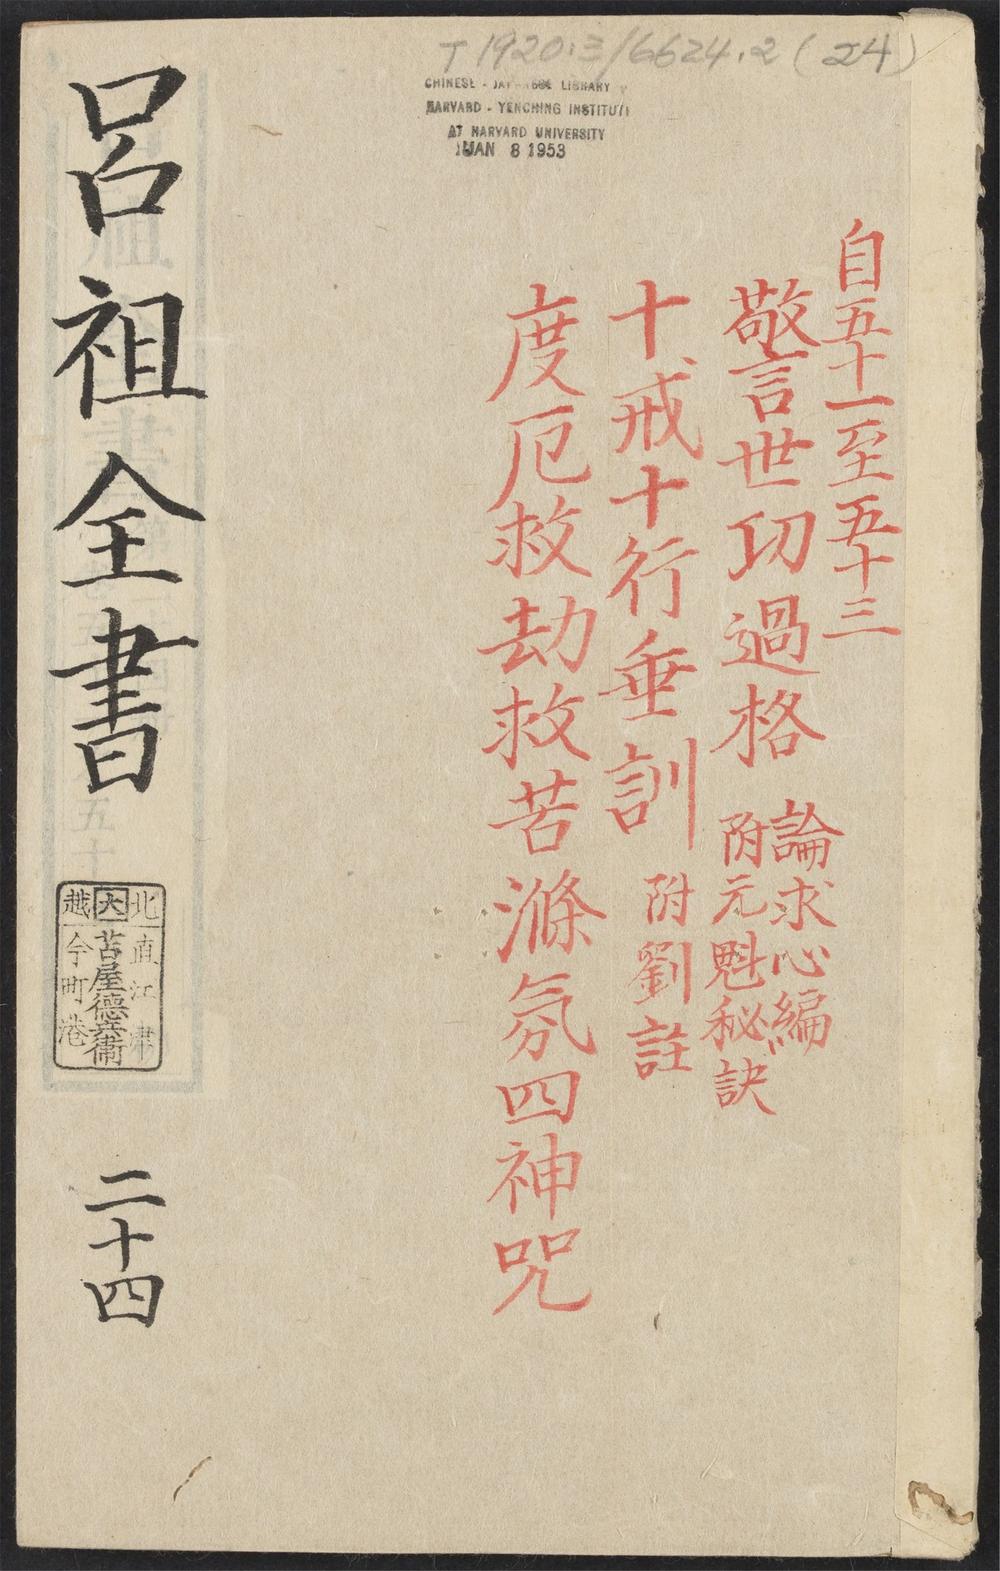 T 1920.3/6624.2 (24)
CHINESE - JAPANESE LIBRARY
HARVARD - YENCHING INSTITUTE
AT HARVARD UNIVERSITY
JAN 8 1953
自五十一至五十三
警世功過格
論求心編
附元魁秘訣
十戒十行垂訓 附劉註
度厄救劫救苦滌氛四神咒
呂祖全書
北越
大
直江津
苫屋德兵衞
今町港
二十四